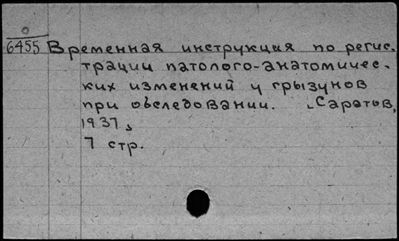 6455 Временная инструкция по регис-
трации патолого-анатомичес-
ких изменений у грызунов
при обследовании. Саратов,
1937,
7 стр.